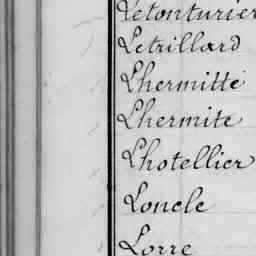 Letonturier
Letrillard
Lhermitte
Lhermite
Lhotellier
Loncle
Lorre